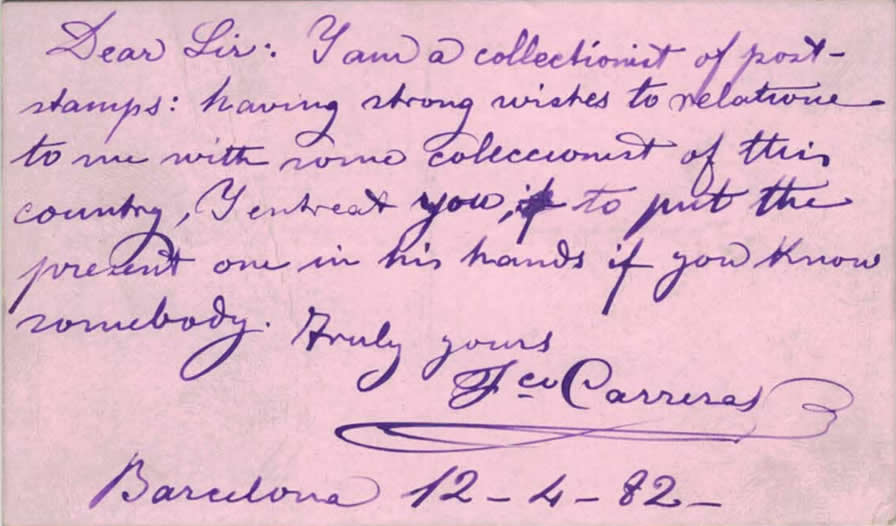 Dear Sir: I am a collectionist of post-
stamps: having strong wishes to relatione
to me with some coleccionist of this
country, I entreat you, to put the
present one in his hands if you know
somebody. Truly yours
Fco Carreras
Barcelona 12-4-82-